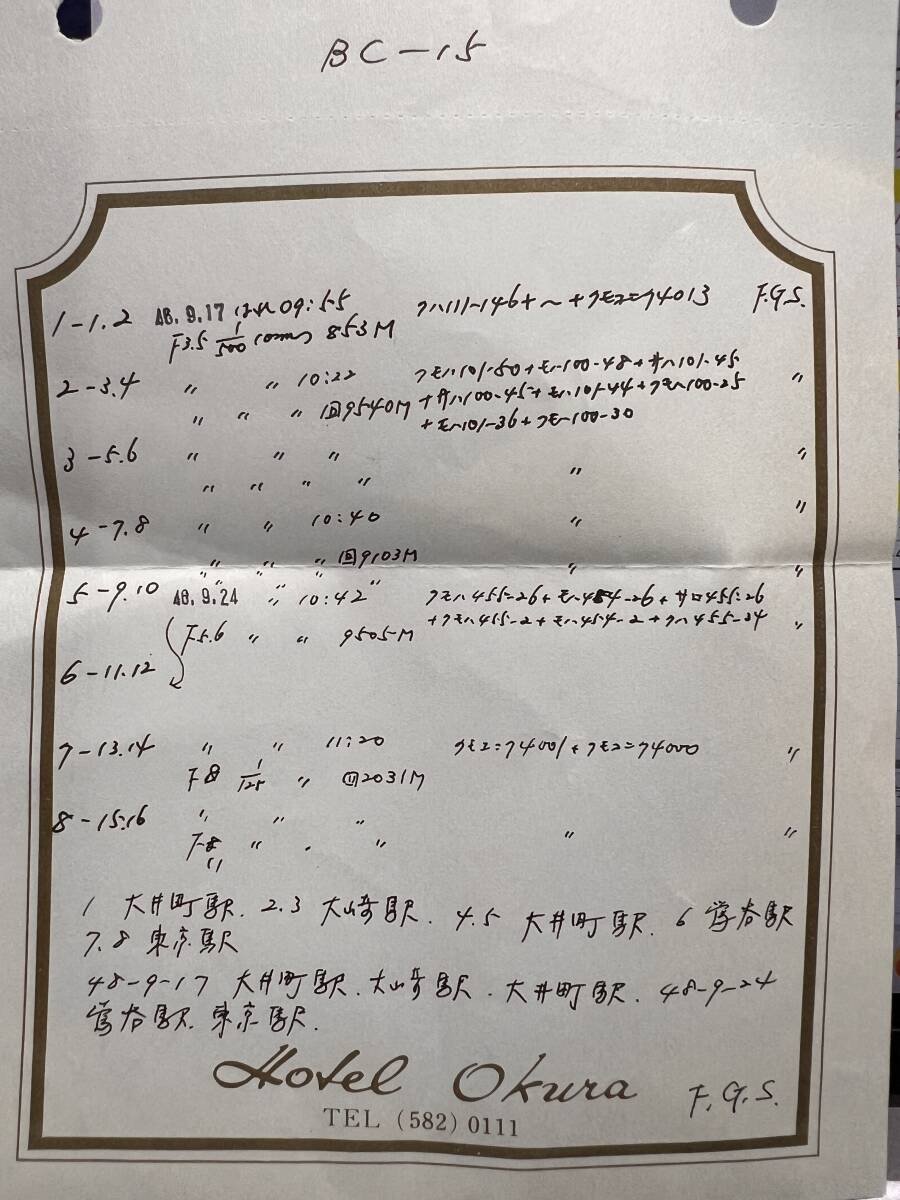 BC-15
1-1.2 48.9.17 はれ 09:55 クハ111-146+〜+クモユニ74013 F.G.S.
F3.5 1/500 100mm 853M
2-3.4 〃 〃 10:22 クモハ101-50+モハ100-48+サハ101-45 〃
〃 〃 〃 回9540M +サハ100-45+モハ101-44+クモハ100-25
+モハ101-36+クモハ100-30
3-5.6 〃 〃 〃 〃 〃
〃 〃 〃 〃
4-7.8 〃 〃 10:40 〃 〃
〃 〃 〃 回9103M 〃 〃
5-9.10 48.9.24 〃 10:42 クモハ455-26+モハ454-26+サロ455-26
F5.6 〃 〃 9505M +クモハ455-2+モハ454-2+クハ455-24 〃
6-11.12
7-13.14 〃 〃 11:20 クモユニ74001+クモユニ74000 〃
F8 1/125 〃 回2031M
8-15.16 〃 〃 〃 〃 〃
F8 〃 〃
1 大井町駅. 2.3 大崎駅. 4.5 大井町駅. 6 鶯谷駅
7.8 東京駅
48-9-17 大井町駅. 大崎駅. 大井町駅. 48-9-24
鶯谷駅. 東京駅.
Hotel Okura
TEL (582) 0111
F.G.S.